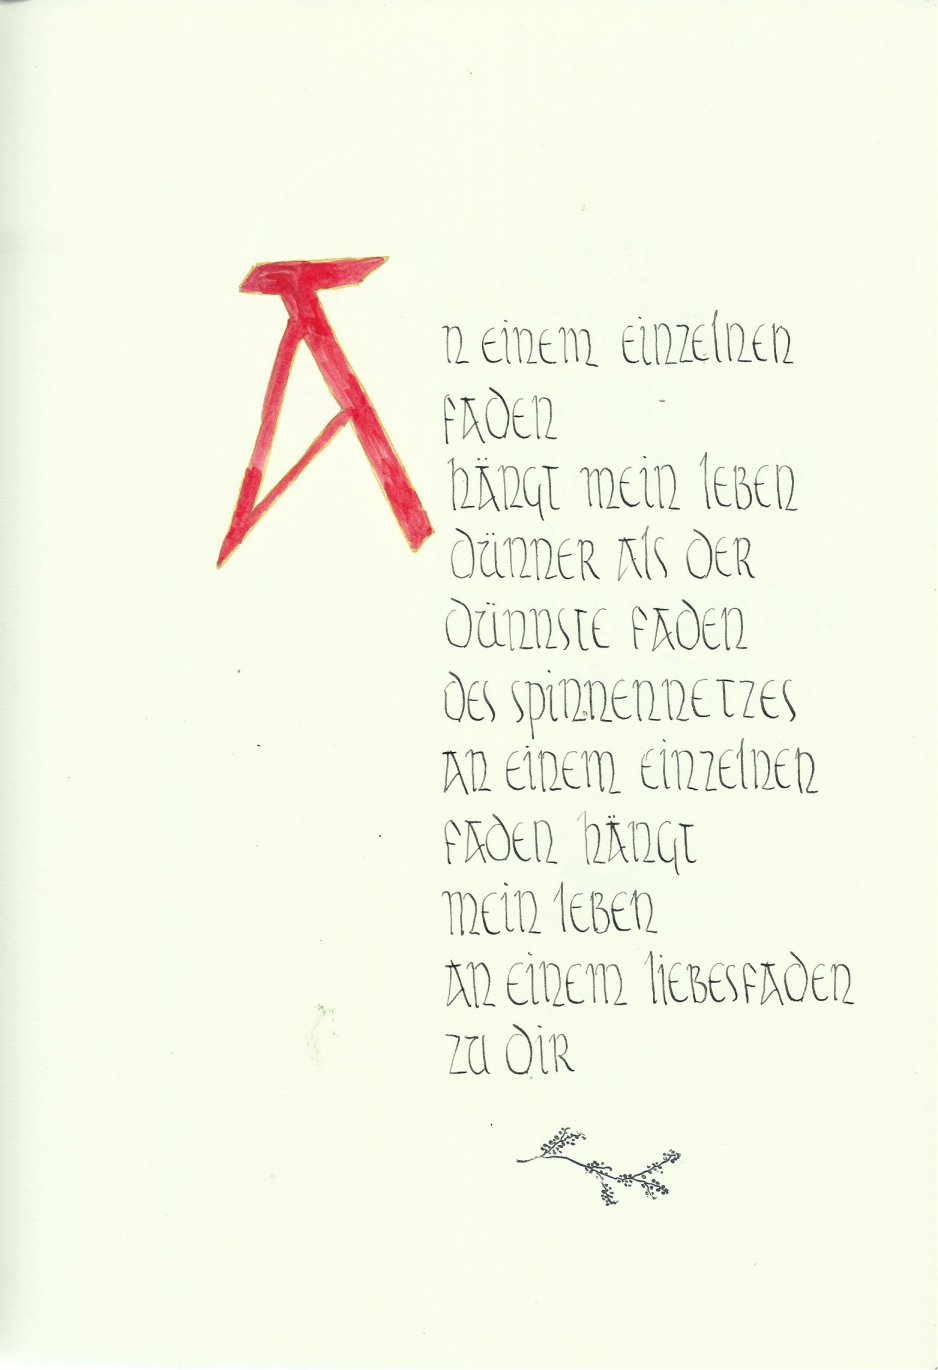 An einem einzelnen
faden
hängt mein leben
dünner als der
dünnste faden
des spinnennetzes
an einem einzelnen
faden hängt
mein leben
an einem liebesfaden
zu dir